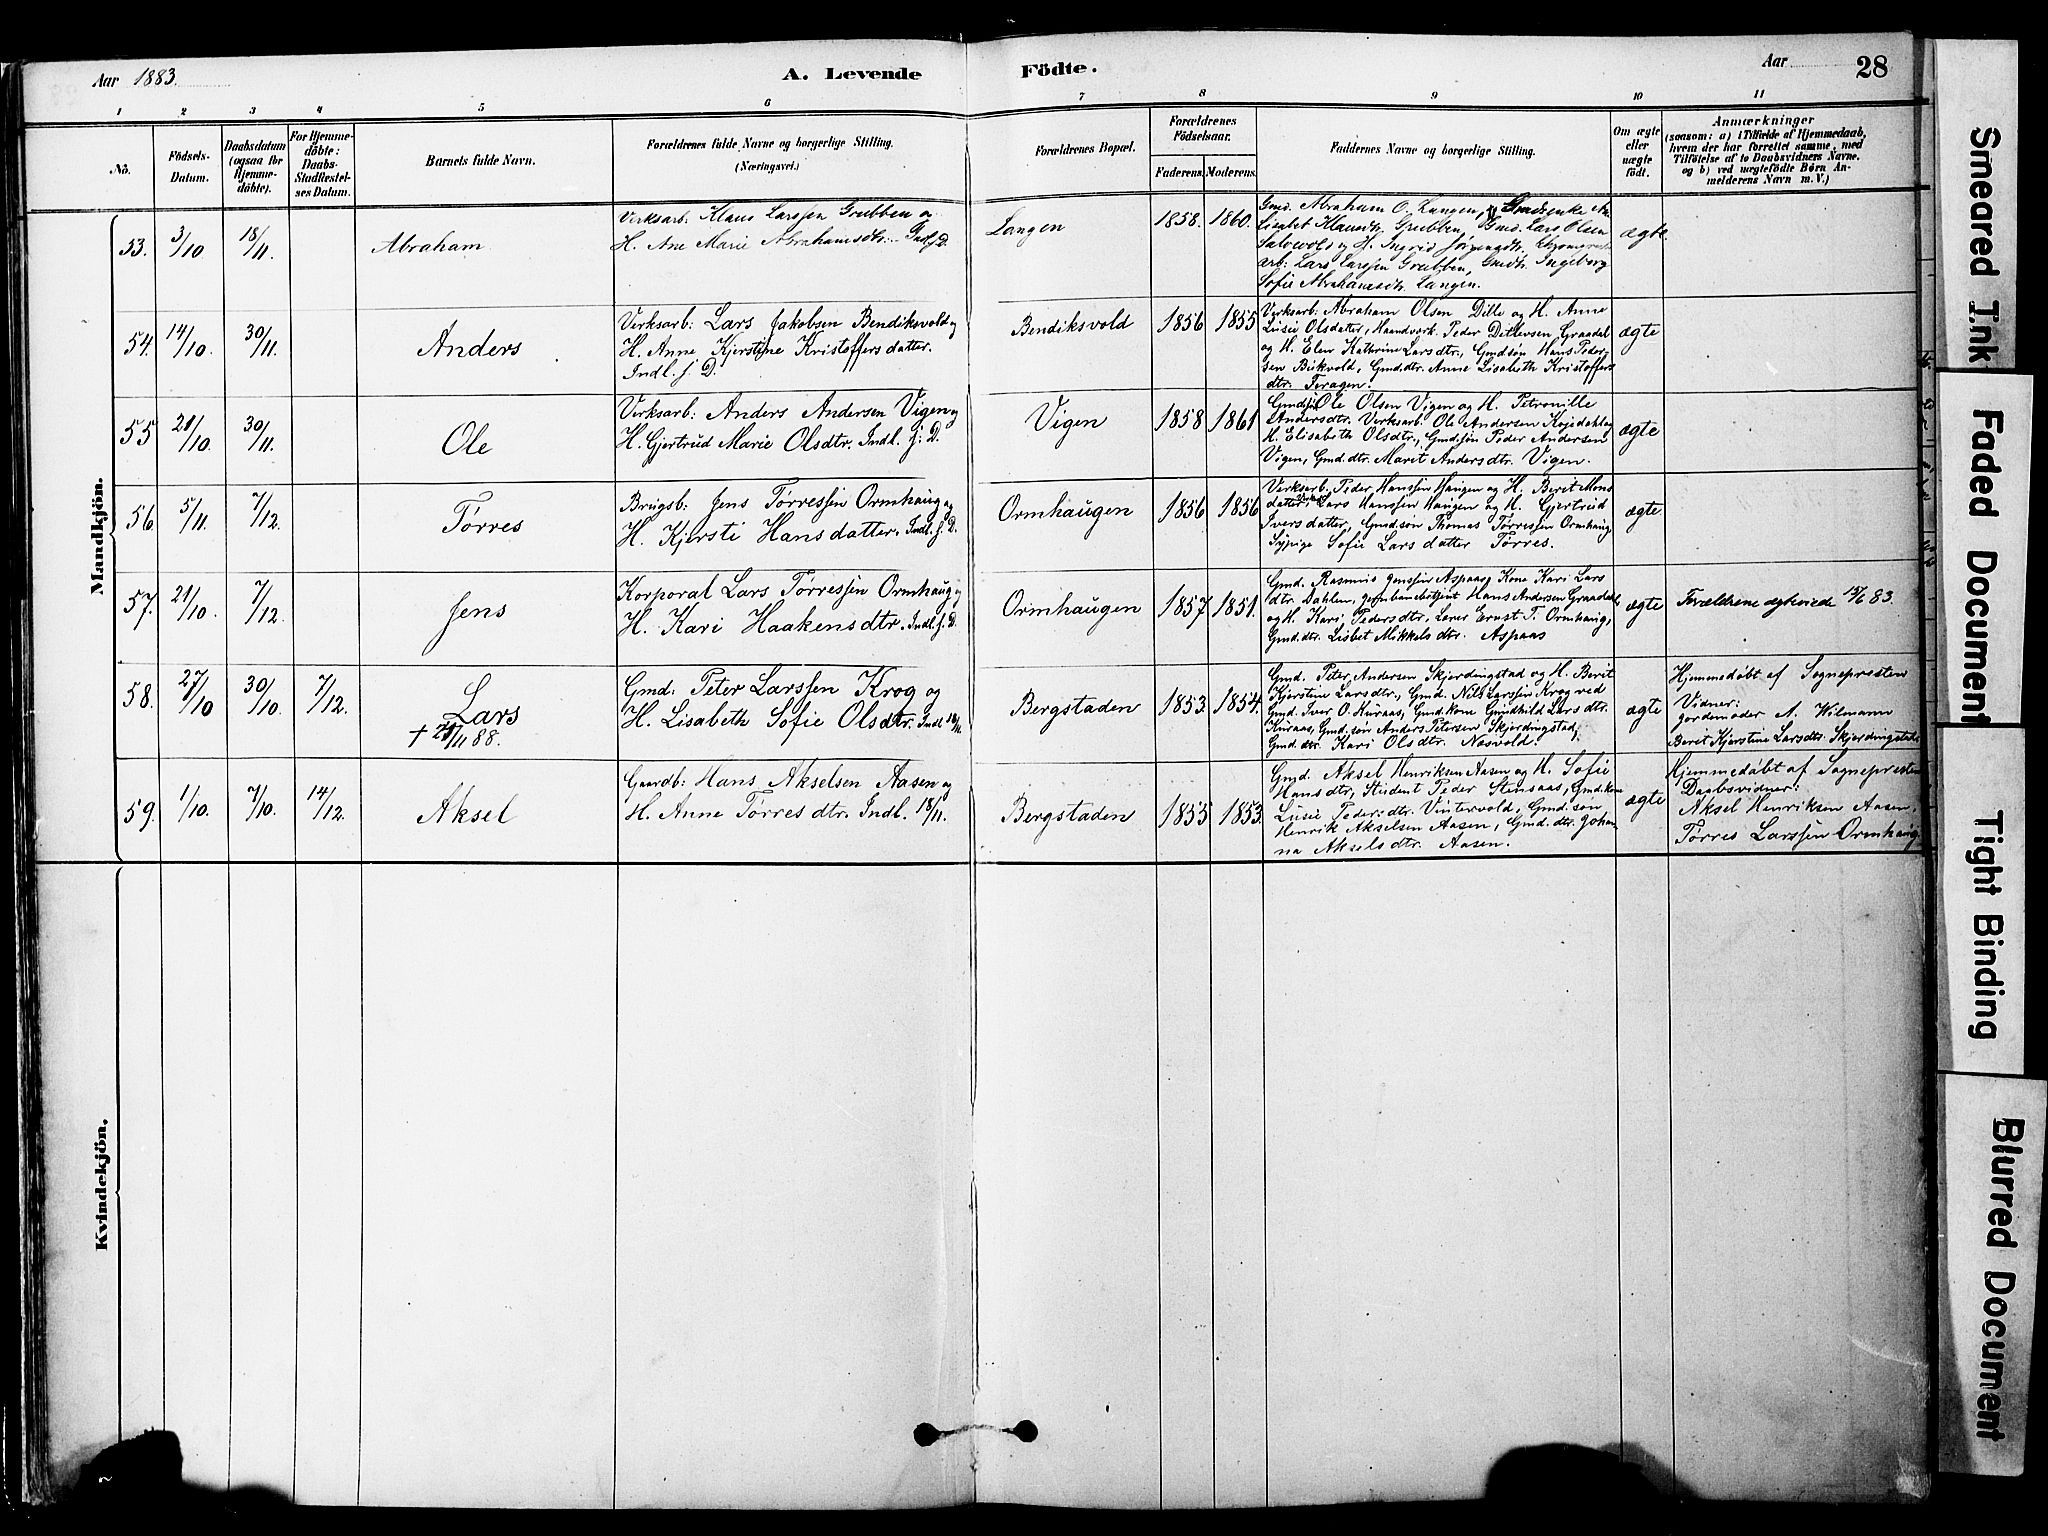 Aar 1883.
A. Levende Födte.
Aar
28
1 2 3 4 5 6 7 8 9 10 11
No.
Födsels-
Datum.
Daabsdatum
(ogsaa for
Hjemme-
döbte).
For Hjemme-
döbte:
Daabs-
Stadfæstel-
ses Datum.
Barnets fulde Navn.
Forældrenes fulde Navne og borgerlige Stilling.
(Næringsvei.)
Forældrenes Bopæl.
Forældrenes
Födselsaar.
Faderens. Moderens.
Faddernes Navne og borgerlige Stilling.
Om ægte
eller
uægte
födt.
Anmærkninger
(saasom: a) i Tilfælde af Hjemmedaab,
hvem der har forrettet samme, med
Tilföielse af to Daabsvidners Navne.
og b) ved uægtefödte Börn An-
melderens Navn m. V.)
Mandkjön.
53. 3/10 18/11
Abraham
Verksarb: Klaus Larssen Grubben og
H. Ane Marie Abrahamsdtr. Indl. f. D.
Langen
1858. 1860.
Gmd. Abraham O. Langen,
Lisabet Klausdtr. Grubben, Gmd. Lars Olsen
og H. Ingrid
arb: Lars Larssen Grubben, Gmdtr. Ingeborg
Sofie Abrahamsdtr. Langen.
ægte.
54. 14/10. 30/11.
Anders
Verksarb: Lars Jakobsen Bendiksvold og
H. Anne Kjerstine Kristoffersdatter.
Indl. f. D.
Bendiksvold
1856 1855
Verksarb: Abraham Olsen Dille og H. Anne
Lusie Olsdatter, Haandverk. Peder Ditlevsen Graadal
og H. Elen Kathrine Larsdtr., Gmdsøn Hans Peder-
sen Bukvold, Gmd.dtr. Anne Lisabeth Kristoffers
dtr. Feragen.
ægte
55 21/10. 30/11.
Ole
Verksarb: Anders Andersen Vigen og
H. Gjertrud Marie Olsdtr. Indl. f. D.
Vigen
1858 1861
Ole Olsen Vigen og H. Petronille
Andersdtr. Verksarb. Ole Andersen Kojedahl og
H. Elisabeth Olsdtr., Gmd.søn Peder Andersen
Vigen, Gmd.dtr. Marit Andersdtr. Vigen.
ægte
56 5/11. 7/12.
Tørres
Brugsb: Jens Tørressen Ormhaug og
H. Kjersti Hansdatter. Indl. f. D.
Ormhaugen
1856 1856
Verksarb. Peder Hanssen Haugen og H. Berit Mons
datter, Lars Hanssen Haugen og H. Gjertrud
Iversdatter, Gmd.søn Thomas Tørressen Ormhaug,
Sypige Sofie Larsdatter Tørres.
ægte
57. 21/10. 7/12.
Jens
Korporal Lars Tørressen Ormhaug og
H. Kari Haakensdtr. Indl. f. D.
Ormhaugen
1857. 1851.
Gmd. Rasmus Jenssen Aspaas, Kone Kari Lars
dtr. Dahlen, Jernbanebetjent Hans Andersen Graadal
og H. Kari Pedersdtr, Lærer Ernst T. Ormhaug,
Gmd.dtr. Lisbet Mikkelsdtr. Aspaas
ægte
Forældrene ægteviede 13/6 83.
58. 27/10 30/10. 7/12.
Lars
+ 88.
Gmd. Peter Larssen Krog og
H. Lisabeth Sofie Olsdtr. Indl 18/11.
Bergstaden
1853. 1854.
Gmd. Peter Andersen Skjerdingstad og H. Berit
Kjerstine Larsdtr., Gmd. Nils Larssen Krog ved
Gmd. Iver O. Kuraas, Gmd.kone Gundhild Larsdtr.
Kuraas, Gmd.søn Anders Petersen Skjerdingstad,
Gmd.dtr. Kari Olsdtr. Næsvold.
ægte
Hjemmedøbt af Sognepresten
Vidner:
Jordemoder A. Wilmann
Berit Kjerstine Larsdtr. Skjerdingstad
59. 1/10. 7/10. 14/12.
Aksel
Gaardb: Hans Akselsen Aasen og
H. Anne Tørresdtr. Indl. 18/11.
Bergstaden
1855 1853.
Gmd. Aksel Henriksen Aasen og H. Sofie
Hansdtr, Student Peder Stensaas, Gmd.kone
Lusie Peder:dtr. Vintervold, Gmd.søn
Henrik Akselsen Aasen, Gmd.dtr. Johan
na Akselsdtr. Aasen.
ægte
Hjemmedøbt af Sognepresten
Daabsvidner:
Aksel Henriksen Aasen.
Tørres Larssen Ormhaug
Kvindekjön.
Smeared Ink
Faded Document
Tight Binding
Blurred Document